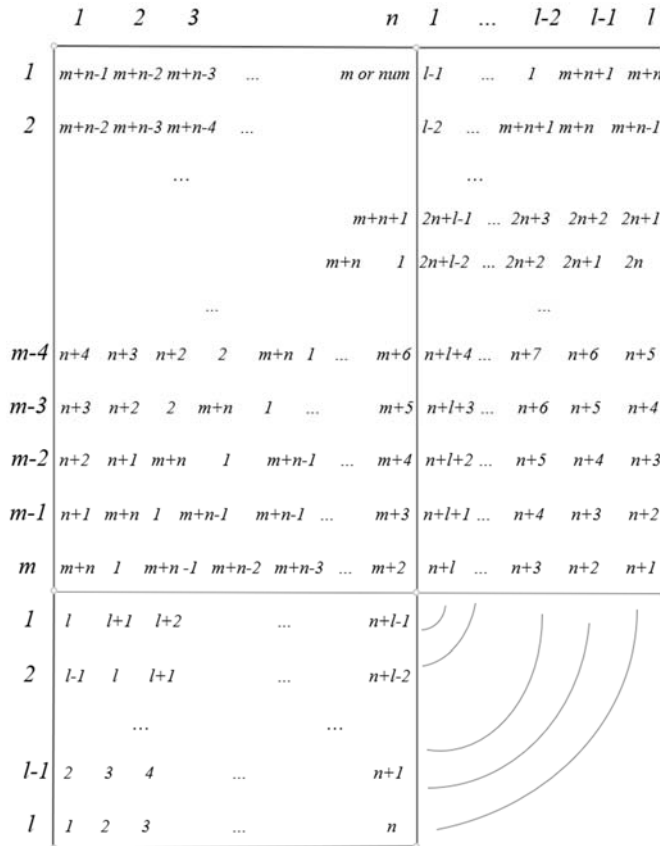 1 2 3 n 1 ... l-2 l-1 l
1 m+n-1 m+n-2 m+n-3 ... m or num l-1 ... 1 m+n+1 m+n
2 m+n-2 m+n-3 m+n-4 ... l-2 ... m+n+1 m+n m+n-1
... ...
m+n+1 2n+l-1 ... 2n+3 2n+2 2n+1
m+n 1 2n+l-2 ... 2n+2 2n+1 2n
... ...
m-4 n+4 n+3 n+2 2 m+n 1 ... m+6 n+l+4 ... n+7 n+6 n+5
m-3 n+3 n+2 2 m+n 1 ... m+5 n+l+3 ... n+6 n+5 n+4
m-2 n+2 n+1 m+n 1 m+n-1 ... m+4 n+l+2 ... n+5 n+4 n+3
m-1 n+1 m+n 1 m+n-1 m+n-1 ... m+3 n+l+1 ... n+4 n+3 n+2
m m+n 1 m+n -1 m+n-2 m+n-3 ... m+2 n+l ... n+3 n+2 n+1
1 l l+1 l+2 ... n+l-1
2 l-1 l l+1 ... n+l-2
... ...
l-1 2 3 4 ... n+1
l 1 2 3 ... n